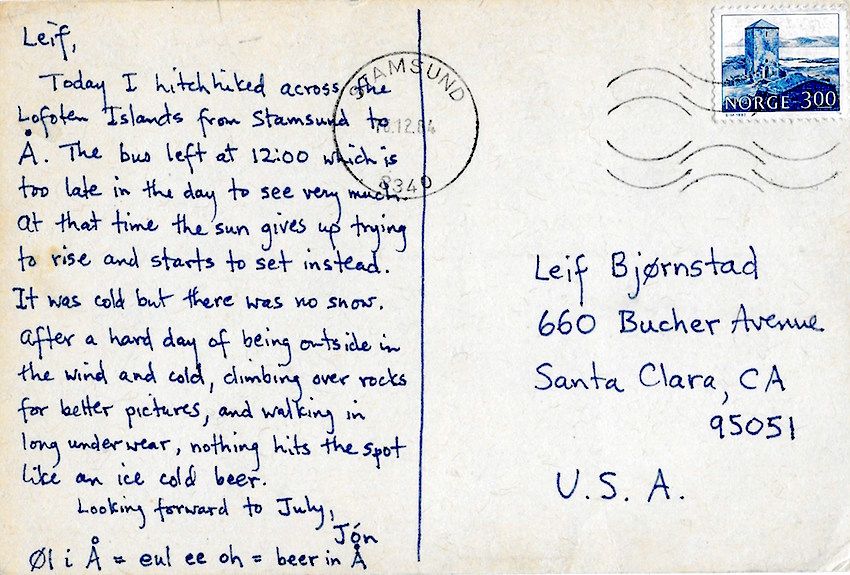 Leif,
Today I hitchhiked across the
Lofoten Islands from Stamsund to
Å. The bus left at 12:00 which is
too late in the day to see very much.
At that time the sun gives up trying
to rise and starts to set instead.
It was cold but there was no snow.
After a hard day of being outside in
the wind and cold, climbing over rocks
for better pictures, and walking in
long underwear, nothing hits the spot
like an ice cold beer.
Looking forward to July,
Jón
Øl i Å = eul ee oh = beer in Å
STAMSUND
12.84
8340
NORGE 300
Leif Bjørnstad
660 Bucher Avenue
Santa Clara, CA
95051
U.S.A.